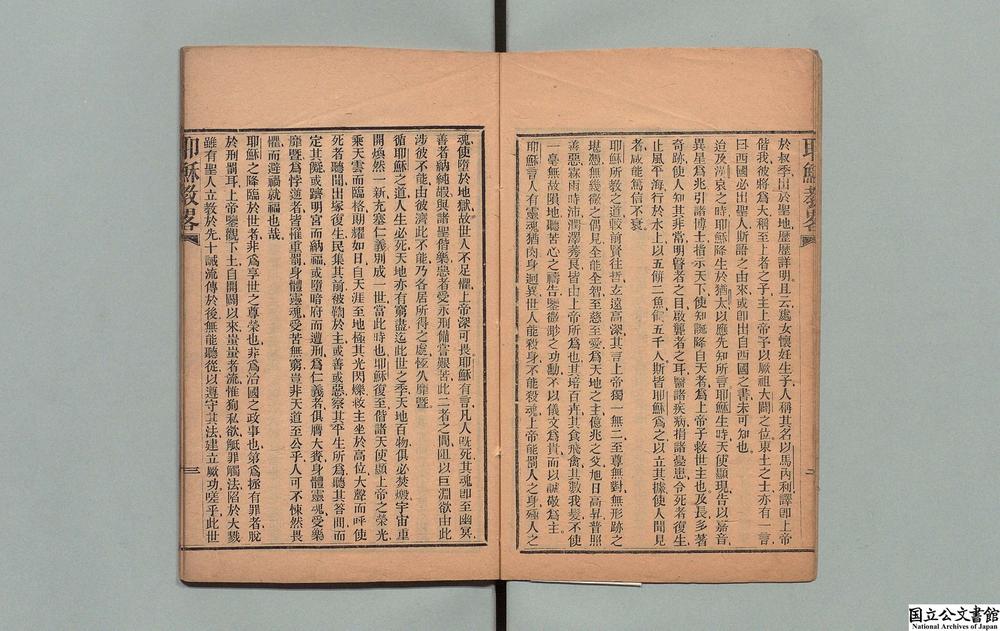 耶穌教畧
二
於叔季出於聖地歷歷詳明且云處女懷妊生子人稱其名以馬內利譯即上帝
偕我彼將爲大稱至上者之子主上帝予以厥祖大闢之位東土之士亦有一言
曰西國必出聖人斯語之由來或即出自西國之書未可知也
迨及漢哀之時耶穌降生於猶太以應先知所言耶穌生時天使顯現告以嘉音
異星爲兆引諸博士指示天下使知誕降自天者爲上帝子救世主也及長多著
奇跡使人知其非常明瞽者之目啟聾者之耳醫諸疾病捐諸憂患令死者復生
止風平海行於水上以五餅二魚飽五千人斯皆耶穌爲之以立其據使人聞見
者咸能篤信不衰
耶穌所教之道較前賢往哲爲遠高深其言上帝獨一無二至尊無對無形跡之
堪憑無幾微之偶見全能全智至慈至愛爲天地之主億兆之父旭日高昇普照
善惡霖雨時沛潤澤莠良皆由上帝所爲也其培百卉其食飛禽其數我髮不使
一毫無故隕地聽苦心之禱告鑒微渺之功勳不以儀文爲貴而以誠敬爲主
耶穌言人有靈魂猶肉身迥異世人能殺身不能殺魂上帝能罰人之身殛人之
魂使墮於地獄故世人不足懼上帝深可畏耶穌有言凡人既死其魂即至幽冥
善者納純嘏與諸聖偕樂惡者受永刑備嘗艱苦此二者之間阻以巨淵欲由此
涉彼不能由彼濟此不能乃各居所得之處恆久靡暨
循耶穌之道人生必死天地亦有窮盡迄此世之季天地百物俱必焚燬宇宙重
開煥然一新充塞仁義別成一世當此時也耶穌復至偕諸天使顯上帝之榮光
乘天雲而臨格期耀如日自天涯至地極其光閃爍救主坐於高位大聲而呼使
死者聽聞出塚復生民集其前被鞫於主或善或惡察其平生所爲聽其答問而
定其讞或躋明宮而納福或墮暗府而遭刑爲仁義者俱膺大賚身體靈魂受樂
靡暨爲悖逆者皆罹重罰身體靈魂受苦無窮豈非天道至公乎人可不悚然畏
懼而避禍就福也哉
耶穌之降臨於世者非爲享世之尊榮也非爲治國之政事也第爲拯有罪者脫
於刑罰耳上帝鑒觀下土自開闢以來蚩蚩者流惟狥私欲觝罪觸法陷於大戮
雖有聖人立教於先十誡流傳於後無能聽從以遵守其法建立厥功嗟乎此世
耶穌教畧
三
国立公文書館
National Archives of Japan